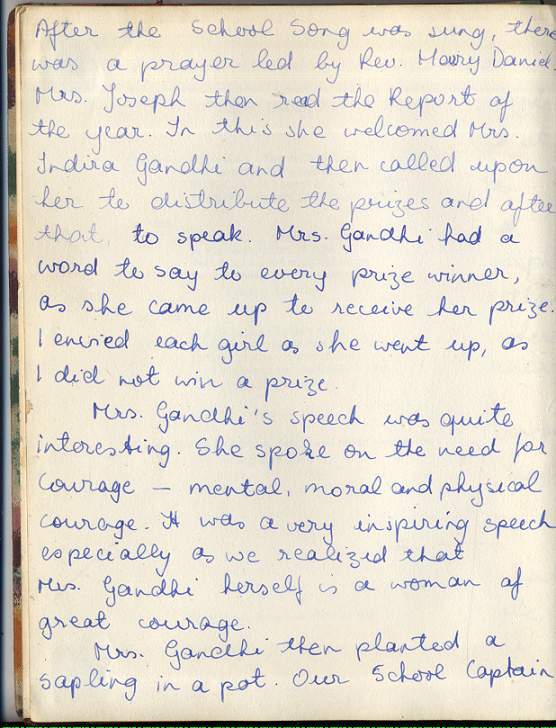 After the School Song was sung, there
was a prayer led by Rev. Maxry Daniel.
Mrs. Joseph then read the Report of
the year. In this she welcomed Mrs.
Indira Gandhi and then called upon
her to distribute the prizes and after
that, to speak. Mrs. Gandhi had a
word to say to every prize winner,
as she came up to receive her prize.
I envied each girl as she went up, as
I did not win a prize.
Mrs. Gandhi's speech was quite
interesting. She spoke on the need for
courage – mental, moral and physical
courage. It was a very inspiring speech
especially as we realized that
Mrs. Gandhi herself is a woman of
great courage.
Mrs. Gandhi then planted a
sapling in a pot. Our School Captain